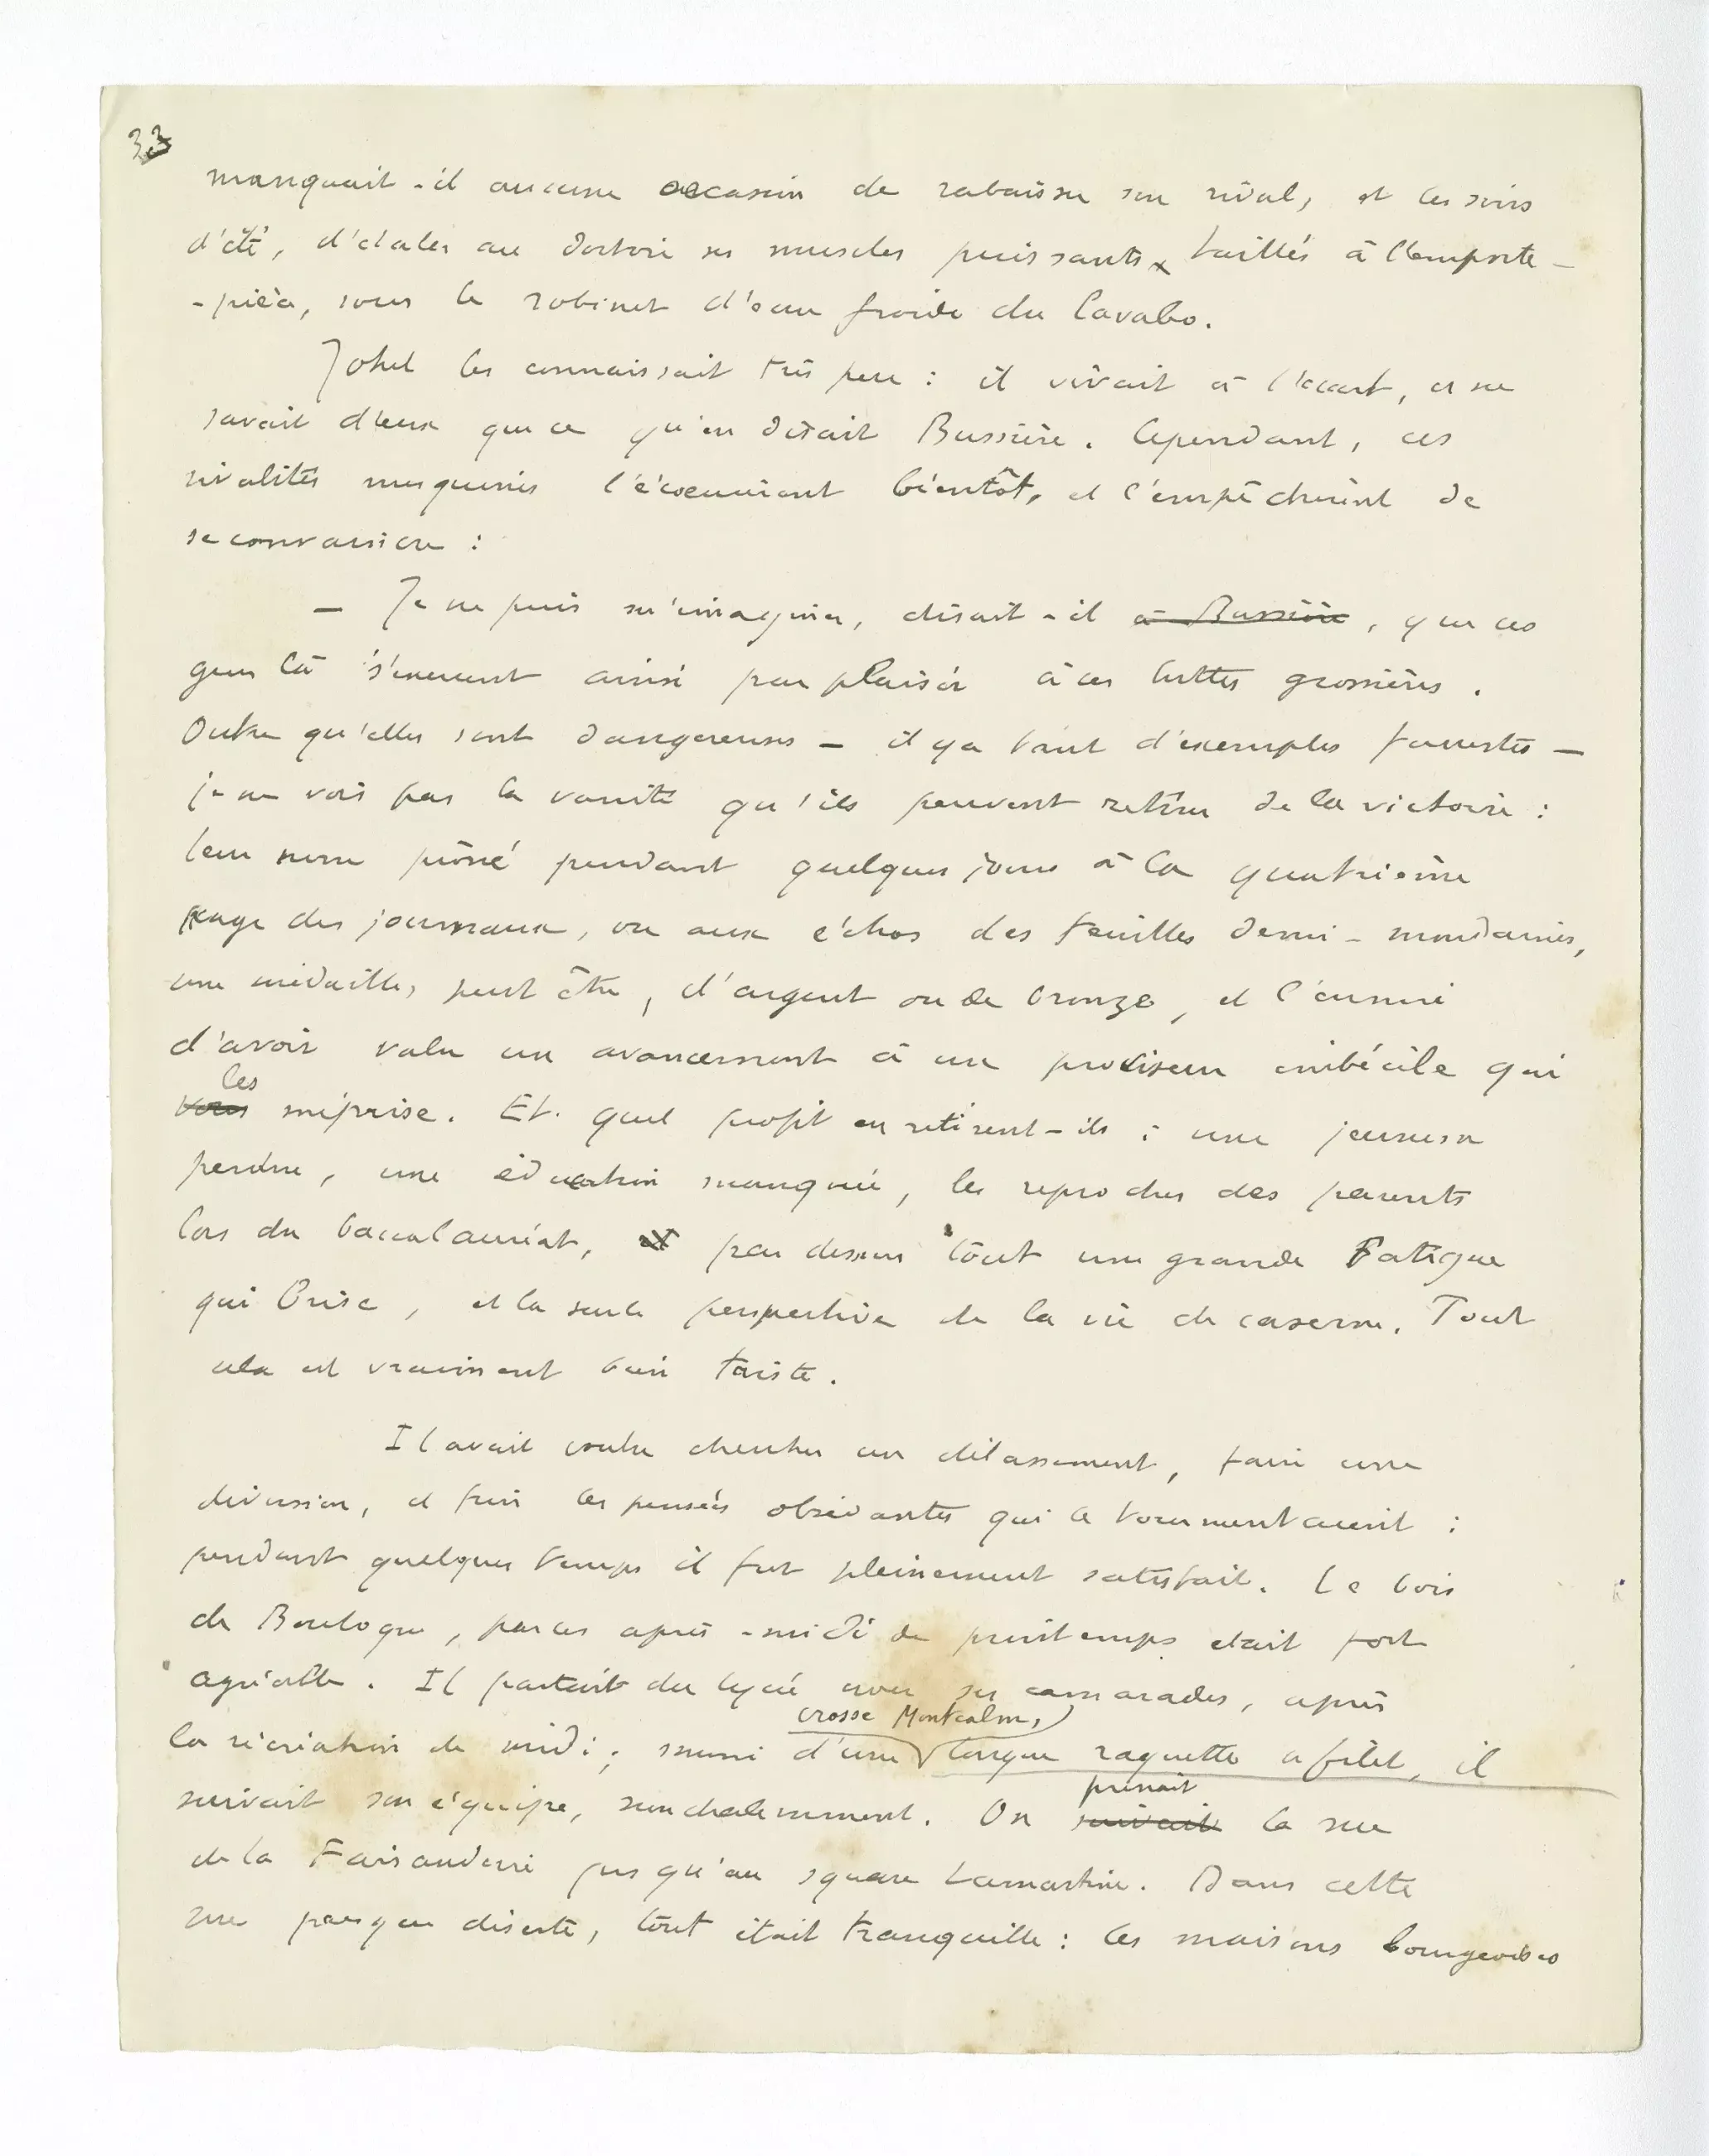 33
manquait-il aucune occasion de rabaisser son rival, et les soirs
d'été, d'étaler au dortoir ses muscles puissants taillés à l'emporte-
-pièce, sous le robinet d'eau froide du lavabo.
Johel les connaissait très peu : il vivait à l'écart, et ne
savait d'eux que ce qu'en disait Bussière. Cependant, ces
rivalités mesquines l'écoeuraient bientôt, et l'empêchaient de
se convaincre :
— Je ne puis m'imaginer, disait-il à Bussière, que ces
gens là s'exercent ainsi par plaisir à ces luttes grossières.
Outre qu'elles sont dangereuses — il y a tant d'exemples funestes —
je ne vois pas la vanité qu'ils peuvent retirer de la victoire :
leur nom prôné pendant quelques jours à la quatrième
page des journaux, ou aux échos des feuilles demi-mondaines,
une médaille, peut être, d'argent ou de bronze, et l'ennui
d'avoir valu un avancement à un proviseur imbécile qui
les
vous méprise. Et quel profit en retirent-ils : une jeunesse
perdue, une éducation manquée, les reproches des parents
lors du baccalauréat, et par dessus tout une grande fatigue
qui brise, et la seule perspective de la vie de caserne. Tout
cela est vraiment bien triste.
Il avait voulu chercher un délassement, faire une
diversion, et fuir les pensées obsédantes qui le tourmentaient :
pendant quelques temps il fut pleinement satisfait. Le bois
de Boulogne, par ces après-midi de printemps était fort
agréable. Il partait du lycée avec ses camarades, après
crosse Montcalm,
la récréation de midi ; muni d'une longue raquette à filet, il
suivait son équipe, nonchalemment. On
prenait
suivait la rue
de la Faisanderie jusqu'au square Lamartine. Dans cette
rue presque déserte, tout était tranquille : les maisons bourgeoises